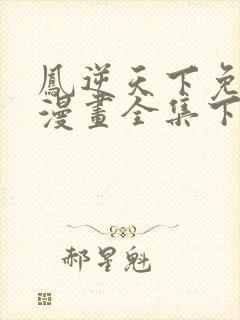 鳳逆天下免
漫畫全集下
郝星魁